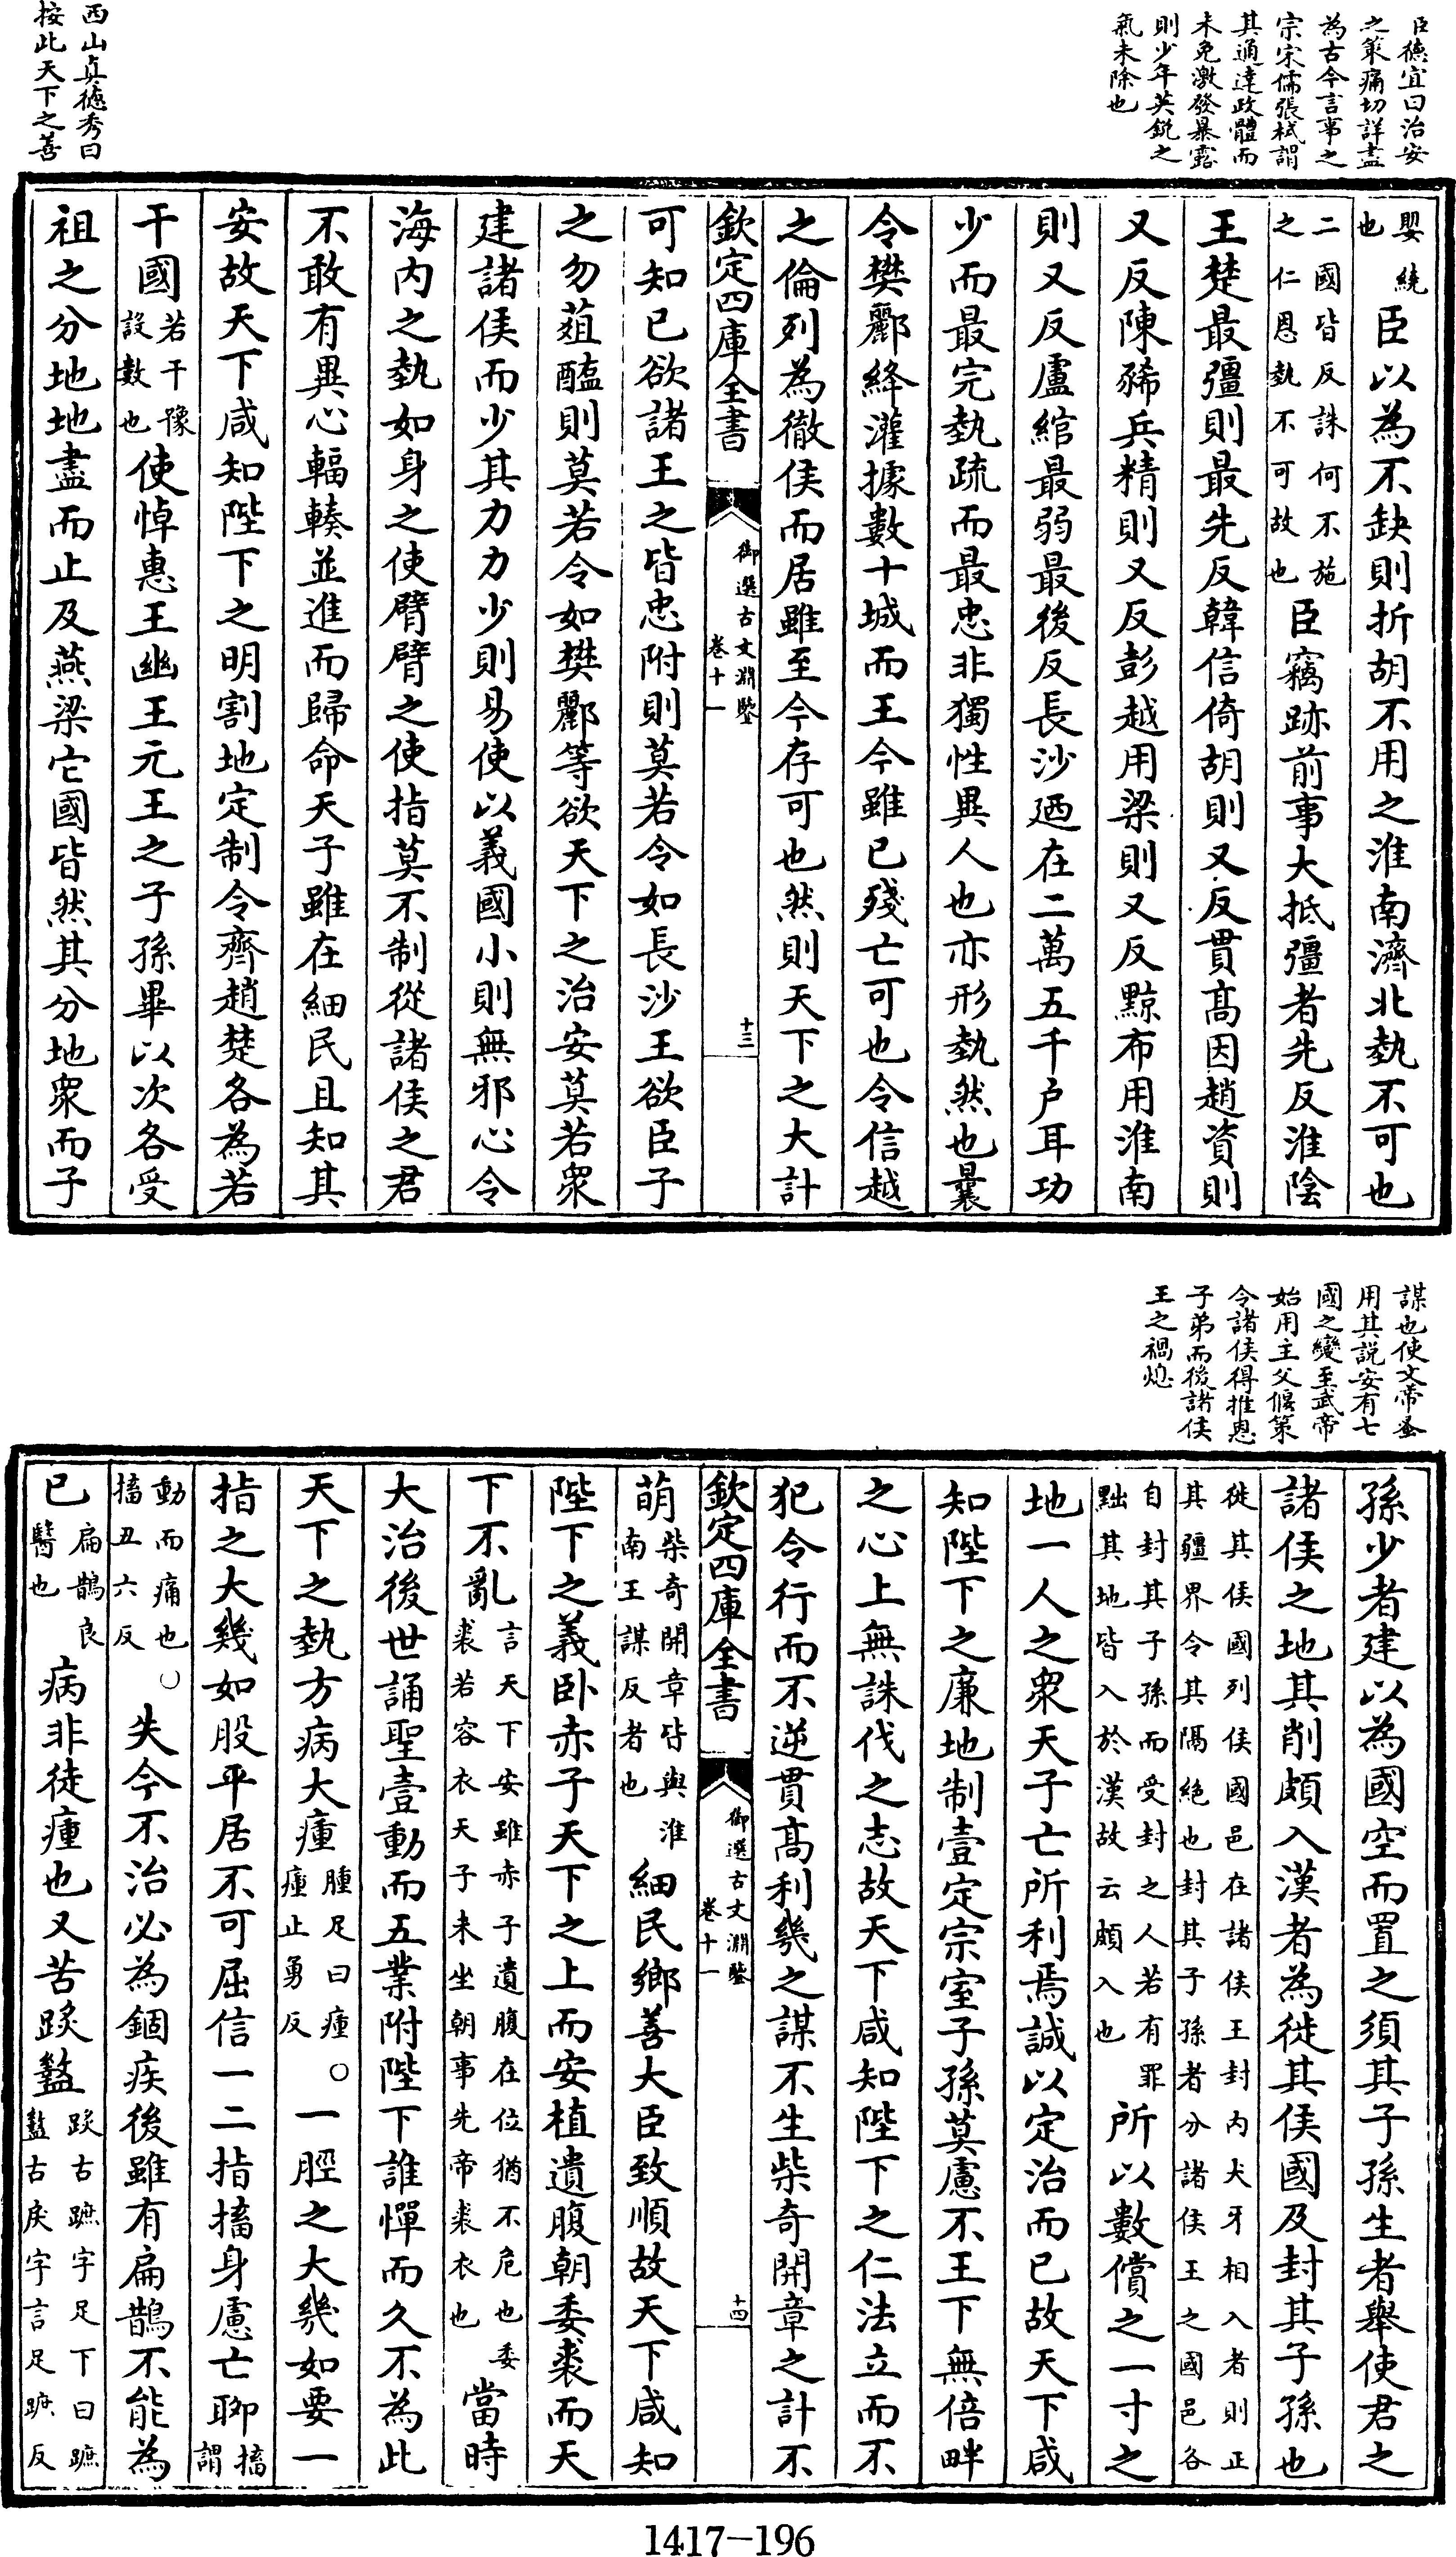 臣德宜曰治安
之策痛切詳盡
為古今言事之
宗宋儒張栻謂
其通達政體而
未免激發暴露
則少年英銳之
氣未除也
西山真德秀曰
按此天下之善
嬰繞
也
臣以為不缺則折胡不用之淮南濟北埶不可也
二國皆反誅何不施
之仁恩埶不可故也
臣竊跡前事大抵彊者先反淮陰
王楚最彊則最先反韓信倚胡則又反貫高因趙資則
又反陳豨兵精則又反彭越用梁則又反黥布用淮南
則又反盧綰最弱最後反長沙廼在二萬五千户耳功
少而最完埶疏而最忠非獨性異人也亦形埶然也曩
令樊酈絳灌據數十城而王今雖已殘亡可也令信越
之倫列為徹侯而居雖至今存可也然則天下之大計
欽定四庫全書
御選古文淵鑒
卷十一
十三
可知已欲諸王之皆忠附則莫若令如長沙王欲臣子
之勿菹醢則莫若令如樊酈等欲天下之治安莫若眾
建諸侯而少其力力少則易使以義國小則無邪心令
海内之埶如身之使臂臂之使指莫不制從諸侯之君
不敢有異心輻輳並進而歸命天子雖在細民且知其
安故天下咸知陛下之明割地定制令齊趙楚各為若
干國
若干豫
設數也
使悼惠王幽王元王之子孫畢以次各受
祖之分地地盡而止及燕梁它國皆然其分地衆而子
謀也使文帝蚤
用其説安有七
國之變至武帝
始用主父偃策
令諸侯得推恩
子弟而後諸侯
王之禍熄
孫少者建以為國空而置之須其子孫生者舉使君之
諸侯之地其削頗入漢者為徙其侯國及封其子孫也
徙其侯國列侯國邑在諸侯王封内犬牙相入者則正
其疆界令其隔絶也封其子孫者分諸侯王之國邑各
自封其子孫而受封之人若有罪
黜其地皆入於漢故云頗入也
所以數償之一寸之
地一人之衆天子亡所利焉誠以定治而已故天下咸
知陛下之廉地制壹定宗室子孫莫慮不王下無倍畔
之心上無誅伐之志故天下咸知陛下之仁法立而不
犯令行而不逆貫高利幾之謀不生柴奇開章之計不
欽定四庫全書
御選古文淵鑒
卷十一
十四
萌
柴奇開章皆與淮
南王謀反者也
細民鄉善大臣致順故天下咸知
陛下之義卧赤子天下之上而安植遺腹朝委裘而天
下不亂
言天下安雖赤子遺腹在位猶不危也委
裘若容衣天子未坐朝事先帝裘衣也
當時
大治後世誦聖壹動而五業附陛下誰憚而久不為此
天下之埶方病大瘇
腫足曰瘇
瘇止勇反
○一脛之大幾如要一
指之大幾如股平居不可屈信一二指搐身慮亡聊
搐
謂
動而痛也
搐丑六反
○失今不治必為錮疾後雖有扁鵲不能為
已
扁鵲良
醫也
病非徒瘇也又苦䟴盭
䟴古蹠字足下曰蹠
盭古戾字言足蹠反
1417-196